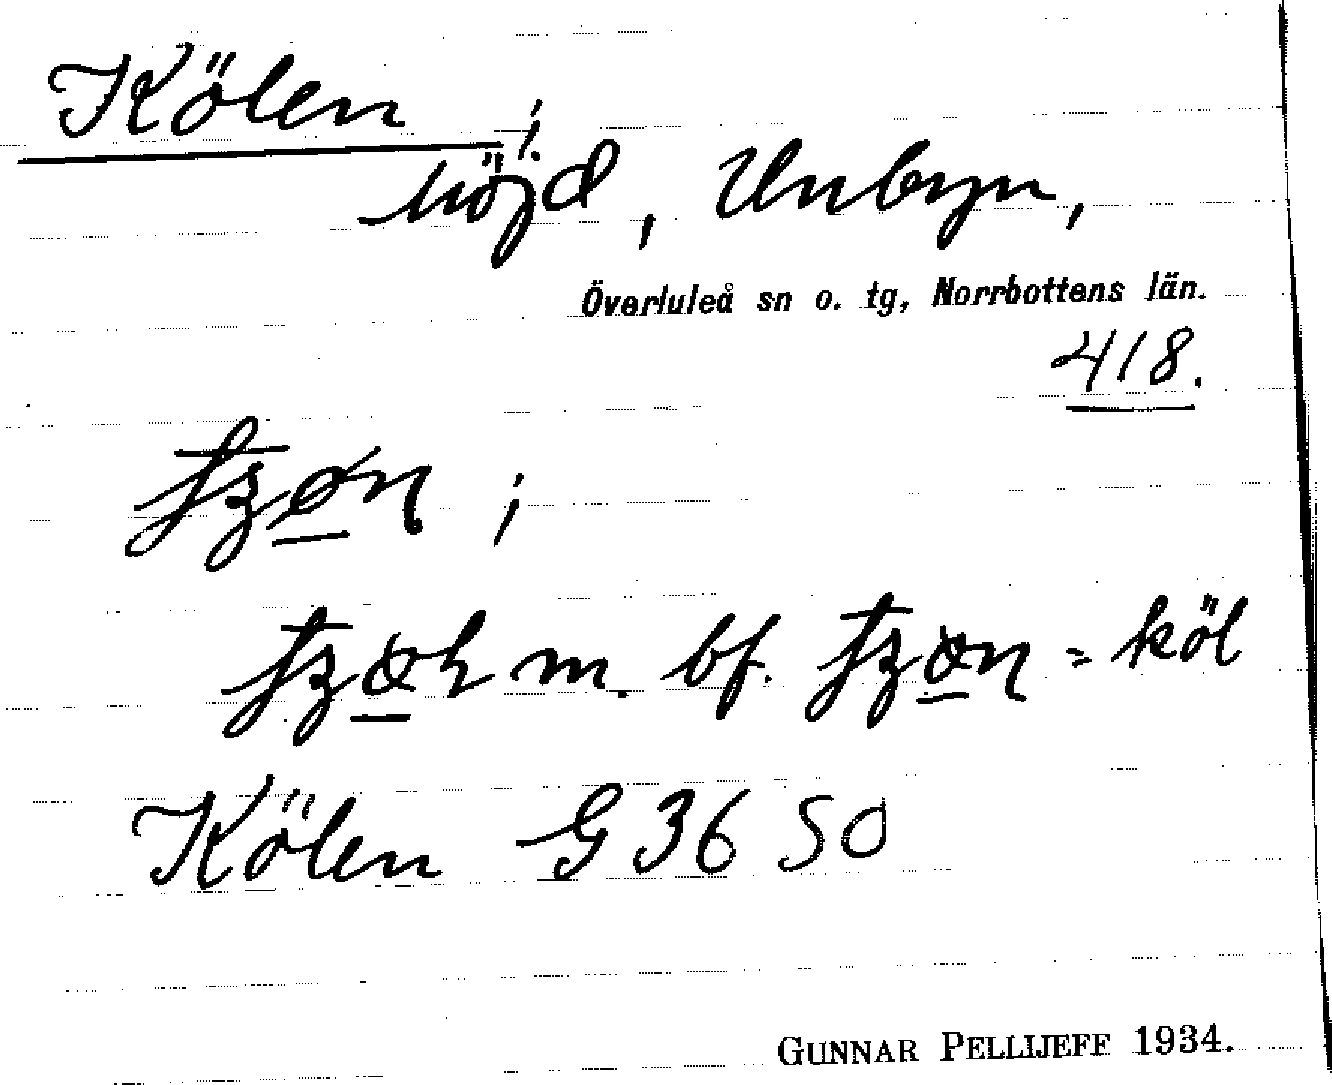 Kölen ;
höjd, Unbyn,
Överluleå sn o. tg, Norrbottens län.
418.
;
m. bf. = köl
Kölen G 36 50
GUNNAR PELLIJEFF 1934.